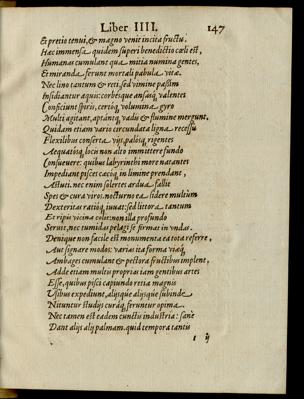 Liber IIII. 147
Et pretio tenui, & magno venit incita fructu.
Hæc immensa quidem superi benedictio cœli est,
Humanas cumulant qua mitia numina gentes,
Et miranda ferunt mortali pabula vitæ.
Nec lino tantum & reti, sed vimine passim
Insidiantur aquis: corbesque valentes
Conficiunt spiris, certoq́; volumina gyro
Multi agitant, aptantq́; vadis & flumine mergunt,
Quidam etiam vario circundata ligna recessu
Flexilibus conserta vijs, paloq́; rigentes
Aequatoq́; locis non alto immittere fundo
Consueuere: quibus labyrinthi more natantes
Impediant pisces cæcoq́; in limine prendant,
Astuti. nec enim solertes ardua fallit
Spes & cura viros. nocturno ea sidere multùm
Dexteritas ratioq́; iuuat: sed littora tantum
Et ripis vicina colit: non illa profundo
Seruit, nec tumidas pelagi se firmat in vndas.
Denique non facile est monumenta ea tota referre,
Aut signare modos: varias ita forma
Ambages cumulant & pectora fructibus implent,
Adde etiam multis proprias iam gentibus artes
Esse, quibus pisci capiundo retia magnis
Vsibus expediunt, alijsque alijsque subinde
Nituntur studijs curáq; feruntur opima.
Nec tamen est eadem cunctis industria: sanè
Dant alijs alij palmam. quid tempora tantis
t ij